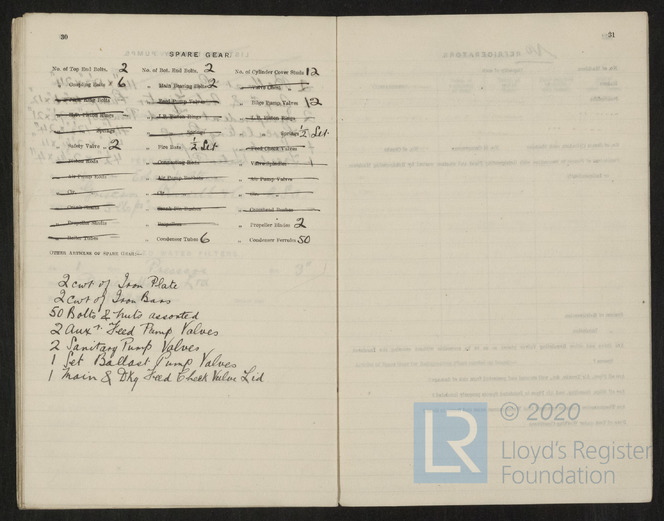 30
SPARE GEAR.
No. of Top End Bolts, 2 No. of Bot. End Bolts, 2 No. of Cylinder Cover Studs 12
" Coupling Bolts 6 " Main Bearing Bolts 2 " Valve Chest "
" Junk Ring Bolts " Feed Pump Valves " Bilge Pump Valves 12
" H.P. Piston Rings " I.P. Piston Rings " L.P. Piston Rings
" Springs " Springs " Springs ½ Set
" Safety Valve " 2 " Fire Bars ½ Set " Feed Check Valves
" Piston Rods " Connecting Rods " Valve Spindles 1
" Air Pump Rods " Air Pump Buckets " Air Pump Valves
" Cir. " " Cir. " " Cir. "
" Crank Shafts " Crank Pin Bushes " Crosshead Bushes
" Propeller Shafts " Propellers " Propeller Blades 2
" Boiler Tubes " Condenser Tubes 6 " Condenser Ferrules 50
OTHER ARTICLES OF SPARE GEAR:—
2 cwt of Iron Plate
2 cwt of Iron Bars
50 Bolts & nuts assorted
2 Auxy. Feed Pump Valves
2 Sanitary Pump Valves
1 Set Ballast Pump Valves
1 Main & Dky Feed Check Valve Lid
31
© 2020
LR
Lloyd's Register
Foundation